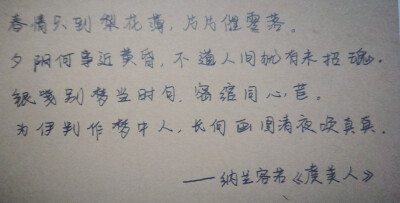 春情只到梨花薄，片片催零落。
夕阳何事近黄昏，不道人间犹有未招魂。
银笺别梦当时句，密绾同心苣。
为伊判作梦中人，长向画图清夜唤真真。
——纳兰容若《虞美人》